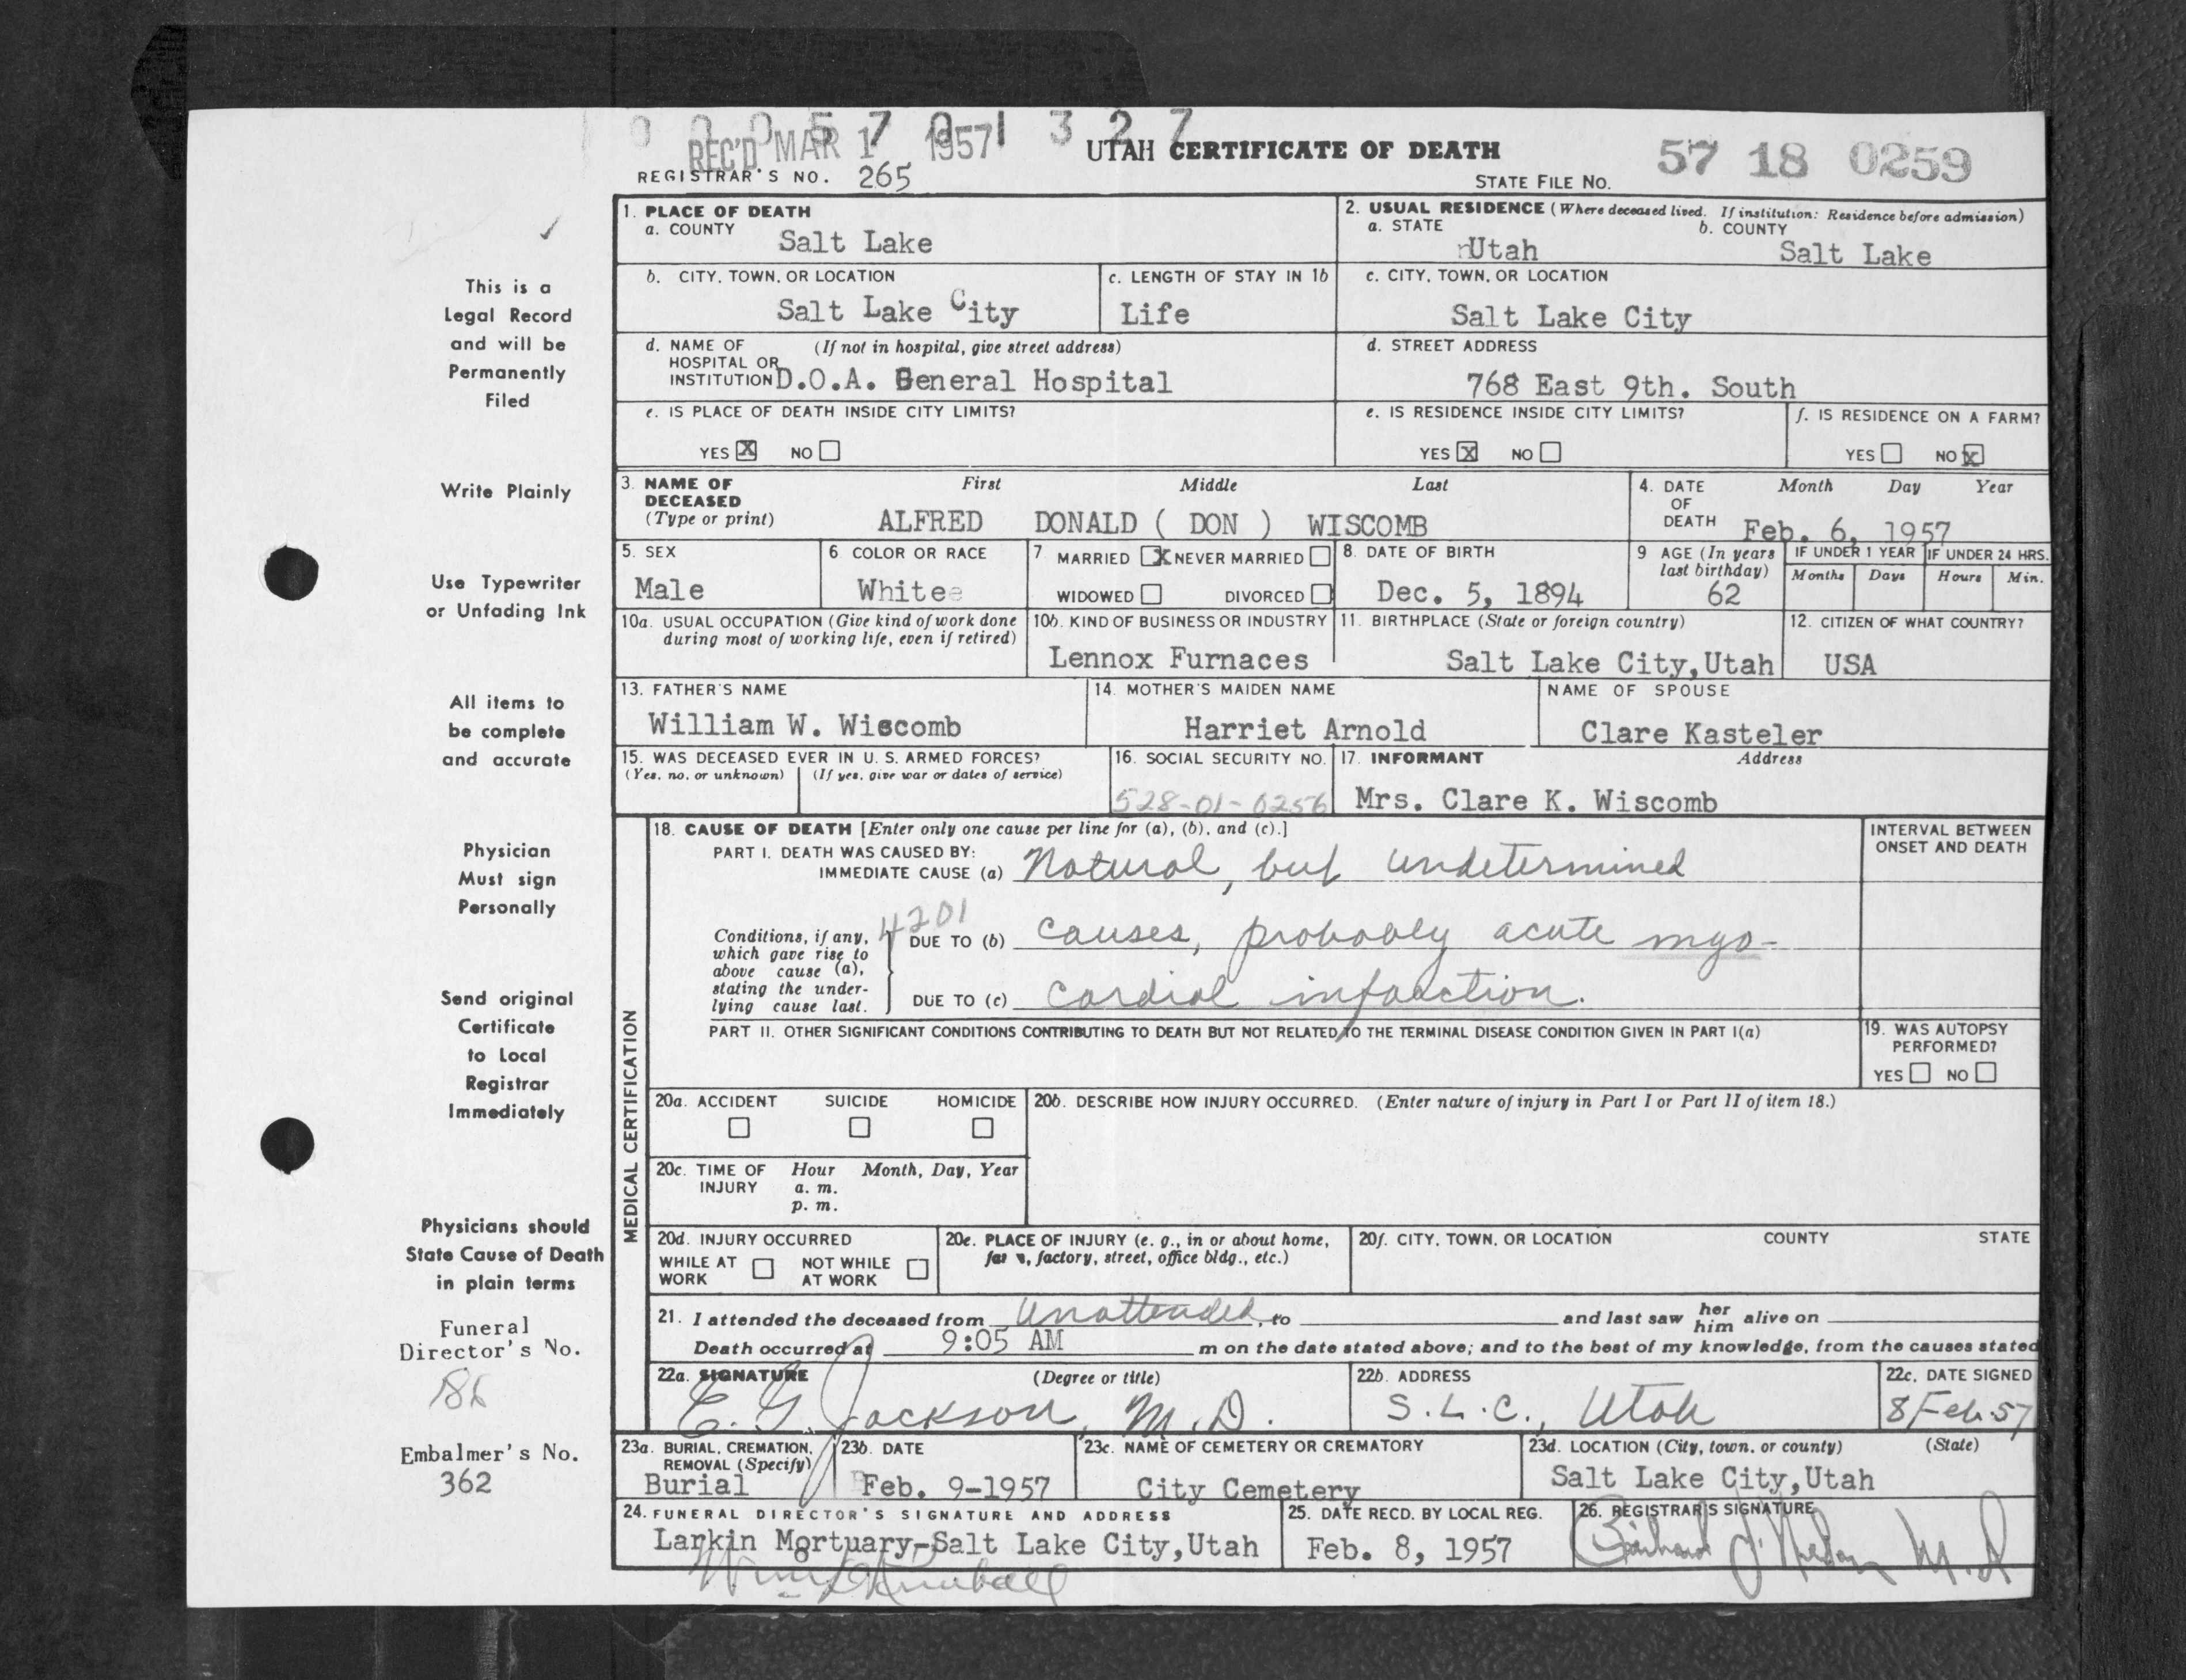 0 0 0 5 7 0 1 3 2 7
REC'D MAR 1 1957
UTAH CERTIFICATE OF DEATH
57 18 0259
REGISTRAR'S NO. 265
STATE FILE NO.
1. PLACE OF DEATH
a. COUNTY Salt Lake
2. USUAL RESIDENCE (Where deceased lived. If institution: Residence before admission)
a. STATE Utah
b. COUNTY Salt Lake
b. CITY, TOWN, OR LOCATION
Salt Lake City
c. LENGTH OF STAY IN 1b
Life
c. CITY, TOWN, OR LOCATION
Salt Lake City
d. NAME OF (If not in hospital, give street address)
HOSPITAL OR
INSTITUTION D.O.A. General Hospital
d. STREET ADDRESS
768 East 9th. South
e. IS PLACE OF DEATH INSIDE CITY LIMITS?
YES X NO
e. IS RESIDENCE INSIDE CITY LIMITS?
YES X NO
f. IS RESIDENCE ON A FARM?
YES NO X
3. NAME OF
DECEASED
(Type or print)
First Middle Last
ALFRED DONALD ( DON ) WISCOMB
4. DATE
OF
DEATH
Month Day Year
Feb. 6, 1957
5. SEX
Male
6. COLOR OR RACE
White
7. MARRIED X NEVER MARRIED
WIDOWED DIVORCED
8. DATE OF BIRTH
Dec. 5, 1894
9 AGE (In years
last birthday)
62
IF UNDER 1 YEAR
Months Days
IF UNDER 24 HRS.
Hours Min.
10a. USUAL OCCUPATION (Give kind of work done
during most of working life, even if retired)
10b. KIND OF BUSINESS OR INDUSTRY
Lennox Furnaces
11. BIRTHPLACE (State or foreign country)
Salt Lake City,Utah
12. CITIZEN OF WHAT COUNTRY?
USA
13. FATHER'S NAME
William W. Wiscomb
14. MOTHER'S MAIDEN NAME
Harriet Arnold
NAME OF SPOUSE
Clare Kasteler
15. WAS DECEASED EVER IN U. S. ARMED FORCES?
(Yes, no, or unknown) (If yes, give war or dates of service)
16. SOCIAL SECURITY NO.
528-01-0256
17. INFORMANT Address
Mrs. Clare K. Wiscomb
MEDICAL CERTIFICATION
18. CAUSE OF DEATH [Enter only one cause per line for (a), (b), and (c).]
INTERVAL BETWEEN
ONSET AND DEATH
PART I. DEATH WAS CAUSED BY:
IMMEDIATE CAUSE (a) Natural, but undetermined
4201
Conditions, if any,
which gave rise to
above cause (a),
stating the under-
lying cause last.
DUE TO (b) causes, probably acute myo-
DUE TO (c) cardial infarction.
PART II. OTHER SIGNIFICANT CONDITIONS CONTRIBUTING TO DEATH BUT NOT RELATED TO THE TERMINAL DISEASE CONDITION GIVEN IN PART I(a)
19. WAS AUTOPSY
PERFORMED?
YES NO
20a. ACCIDENT SUICIDE HOMICIDE
20b. DESCRIBE HOW INJURY OCCURRED. (Enter nature of injury in Part I or Part II of item 18.)
20c. TIME OF Hour Month, Day, Year
INJURY a. m.
p. m.
20d. INJURY OCCURRED
WHILE AT
WORK
NOT WHILE
AT WORK
20e. PLACE OF INJURY (e. g., in or about home,
farm, factory, street, office bldg., etc.)
20f. CITY, TOWN, OR LOCATION COUNTY STATE
21. I attended the deceased from Unattended, to and last saw her him alive on
Death occurred at 9:05 AM m on the date stated above; and to the best of my knowledge, from the causes stated
22a. SIGNATURE (Degree or title)
E. G. Jackson, M.D.
22b. ADDRESS
S.L.C., Utah
22c. DATE SIGNED
8 Feb. 57
23a. BURIAL, CREMATION,
REMOVAL (Specify)
Burial
23b. DATE
Feb. 9-1957
23c. NAME OF CEMETERY OR CREMATORY
City Cemetery
23d. LOCATION (City, town, or county) (State)
Salt Lake City,Utah
24. FUNERAL DIRECTOR'S SIGNATURE AND ADDRESS
Larkin Mortuary-Salt Lake City,Utah
25. DATE RECD. BY LOCAL REG.
Feb. 8, 1957
26. REGISTRAR'S SIGNATURE
M.D
This is a
Legal Record
and will be
Permanently
Filed
Write Plainly
Use Typewriter
or Unfading Ink
All items to
be complete
and accurate
Physician
Must sign
Personally
Send original
Certificate
to Local
Registrar
Immediately
Physicians should
State Cause of Death
in plain terms
Funeral
Director's No.
Embalmer's No.
362